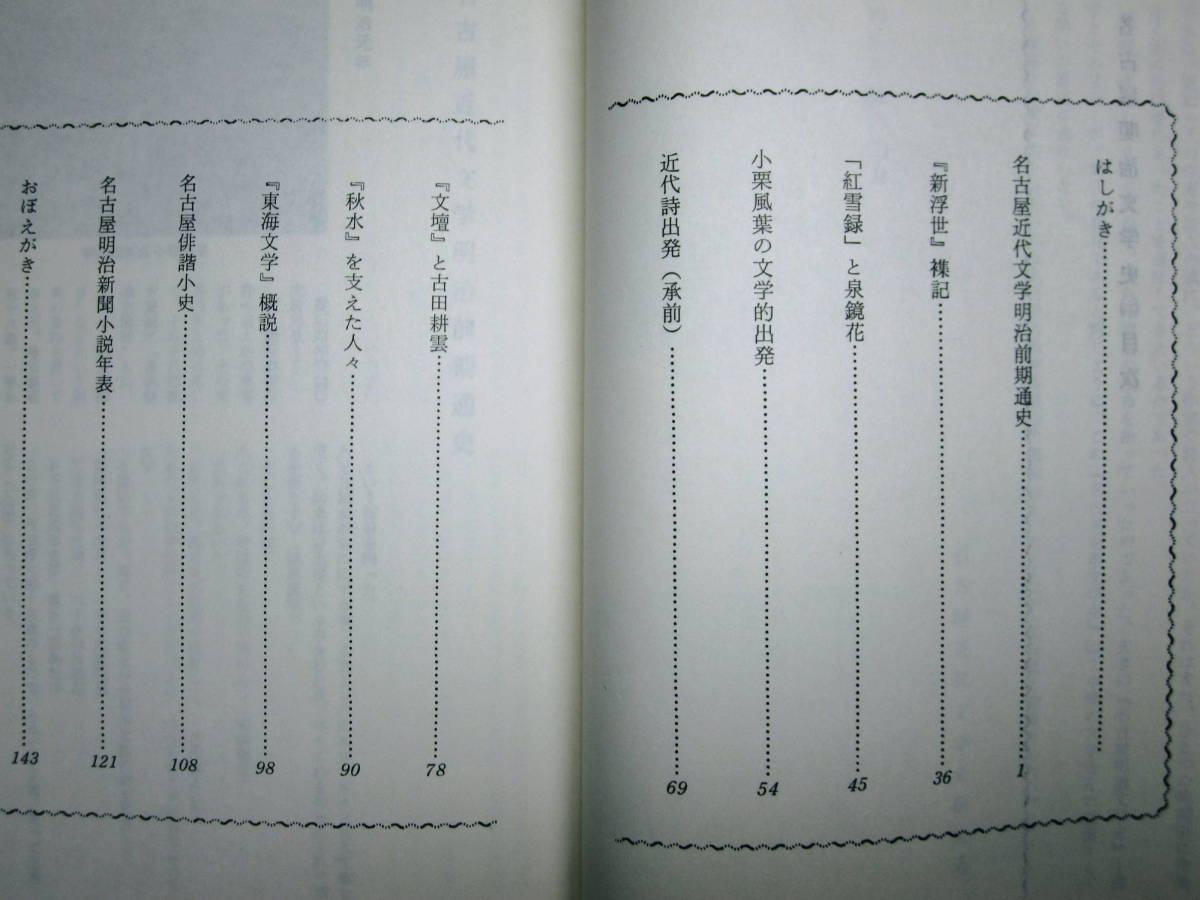 はしがき……………………
名古屋近代文学明治前期通史……………………1
『新浮世』襍記……………………36
「紅雪録」と泉鏡花……………………45
小栗風葉の文学的出発……………………54
近代詩出発（承前）……………………69
『文壇』と古田耕雲……………………78
『秋水』を支えた人々……………………90
『東海文学』概説……………………98
名古屋俳諧小史……………………108
名古屋明治新聞小説年表……………………121
おぼえがき……………………143